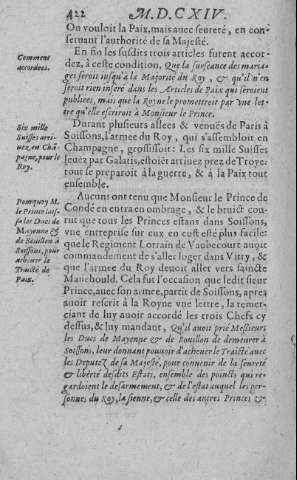 422 M.D.CXIV.
On vouloit la Paix, mais avec seureté, en con-
servant l'authorité de sa Majesté.
Comment
accordees.
En fin les susdits trois articles furent accor-
dez, à ceste condition, Que la surseance des maria-
ges seroit iusqu'à la Majorité du Roy, & qu'il n'en
seroit rien inseré dans les Articles de Paix qui seroient
publiees, mais que la Royne le promettroit par vne let-
tre qu'elle escriroit à Monsieur le Prince.
Six mille
Suisses arri-
uez, en Chã-
pagne, pour le
Roy.
Durant plusieurs allees & venuës de Paris à
Soissons, l'armee du Roy, qui s'assembloit en
Champagne, grossissoit: Les six mille Suisses
leuez par Galatis, estoiēt arriuez prez de Troye:
tout se preparoit à la guerre, & à la Paix tout
ensemble.
Pourquoy M.
le Prince laissa
le Duc de
Mayenne &
de Bouillon à
Soissons, pour
acheuer le
Traicté de
Paix.
Aucuns ont tenu que Monsieur le Prince de
Condé en entra en ombrage, & le bruict cou-
rut que tous les Princes estans dans Soissons,
vne entreprise sur eux en eust esté plus facile:
que le Regiment Lorrain de Vaubecourt auoit
commandement de s'aller loger dans Vitry, &
que l'armee du Roy deuoit aller vers saincte
Manehould. Cela fut l'occasion que ledit sieur
Prince, auec son armee, partit de Soissons, apres
auoir rescrit à la Royne vne lettre, la remer-
ciant de luy auoir accordé les trois Chefs cy
dessus, & luy mandant, Qu'il auoit prié Messieurs
les Ducs de Mayenne & de Bouillon de demeurer à
Soissons, leur donnant pouuoir d'acheuer le Traicté auec
les Deputez de sa Majesté, pour conuenir de la seureté
& liberté desdits Estats, ensemble des poincts qui re-
gardoient le desarmement, & de l'estat auquel les per-
sonnes du Roy, la sienne, & celle des autres Princes &